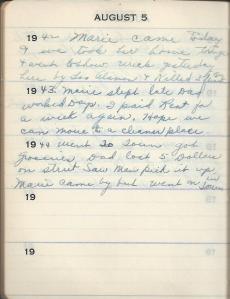 AUGUST 5
1942 Marie came today
& we took her home
& went to show wreck
here by Los & Killed
1943. Marie slept late Dad
worked Days. I paid Rent for
a week again. Hope we
can move to a cleaner place
1944 went to town got
groceries Dad lost 5 Dollars
on street Saw Man pick it up
Marie came by but went on in
town
19
19